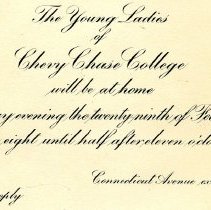 The Young Ladies
of
Chevy Chase College
will be at home
evening the twenty ninth of
eight until half after eleven
Connecticut Avenue